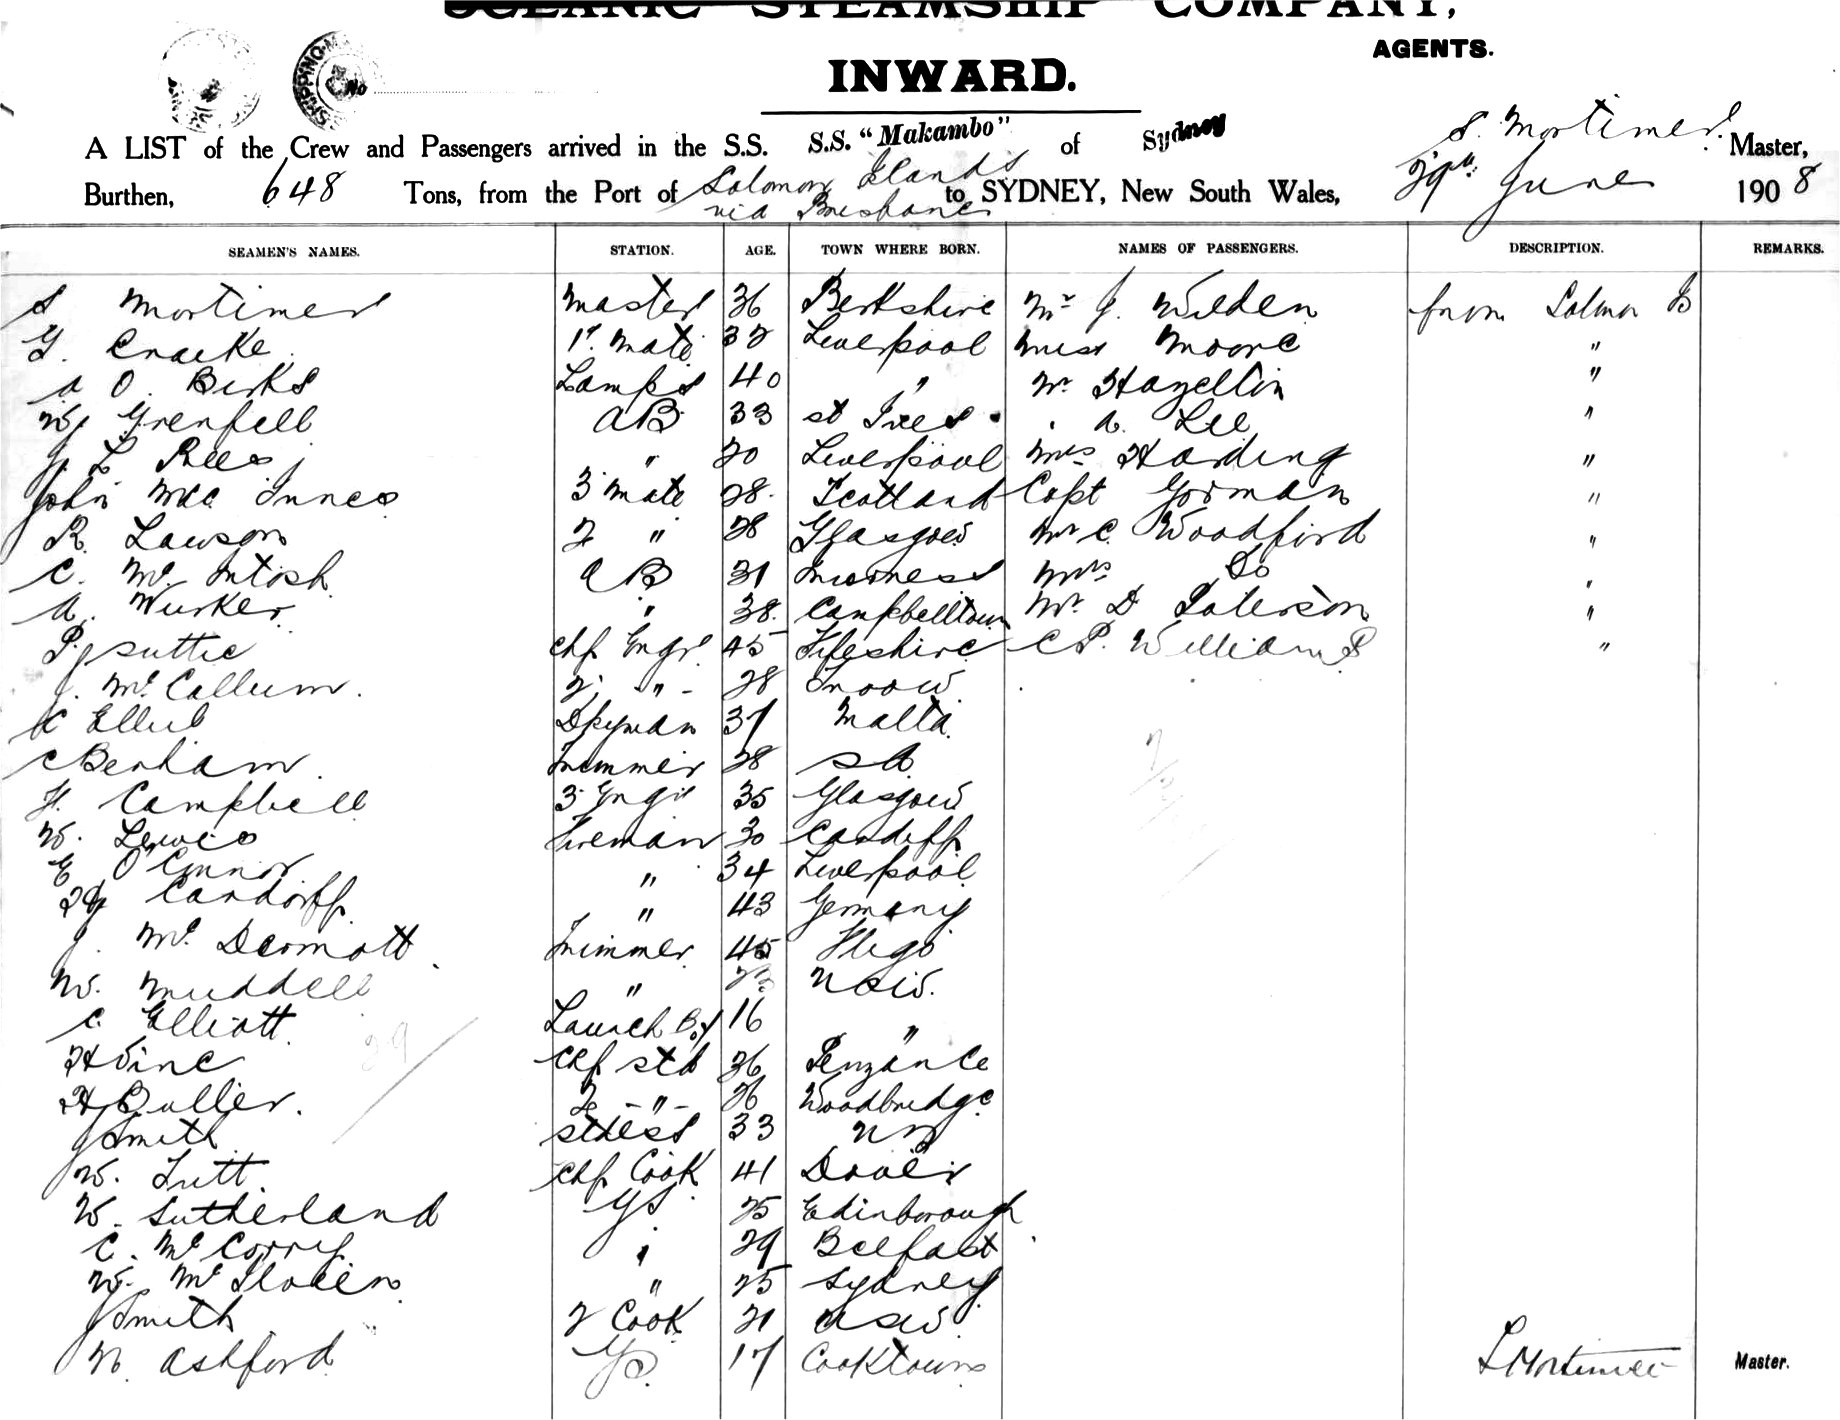 OCEANIC STEAMSHIP COMPANY,
AGENTS.
INWARD.
SHIPPING No
A LIST of the Crew and Passengers arrived in the S.S. S.S. "Makambo" of Sydney S. Mortimer Master,
Burthen, 648 Tons, from the Port of Solomon Islands via Brisbane to SYDNEY, New South Wales, 29th June 1908
SEAMEN'S NAMES. STATION. AGE. TOWN WHERE BORN. NAMES OF PASSENGERS. DESCRIPTION. REMARKS.
S Mortimer Master 36 Berkshire Mr J. Wilden from Solmon Is
G. Craike 1st Mate 32 Liverpool Miss Moore "
A O. Birks Lamps 40 " Mr Hazeltin "
W Grenfell AB 33 St Ives . A. Lee "
J. L Rees " 20 Liverpool Mrs Harding "
John Mac Innes 3 Mate 28. Scotland Capt Gorman "
R. Lawson 2 " 28 Glasgow Mr C. Woodford "
C. Mc Intosh AB 31 Inverness Mrs Do "
A. Wurker " 38. Campbelltown Mr. D Paterson "
P. Suttie Chf Engr 45 Fifeshire C P. Williams "
J. Mc Callum. 2 " 28 Troow
C Ellul Dkyman 37 Malta
C Benham. Trimmer 28 S A
H. Campbell 3 Engr 35 Glasgow
W. Lewis Fireman 30 Cardiff
E O'Connor " 34 Liverpool
Candorff " 43 Germany
J. Mc Dermott Trimmer 45 Sligo
W. Muddell " NSW.
C. Elliott. Launch Boy 16 "
H Vine Chf Std 36 Penzance
H Buller. 2 " 26 Woodbridge
J Smith Stdess 33 NZ
W. Tutt. Chf Cook 41 Dover
W. Sutherland GS 25 Edinborough
C. Mc Corry " 29 Belfast
W. Mc " 25 Sydney
J Smith 2 Cook 21 NSW
N. Ashford GS. 17 Cooktown
S Mortimer Master.